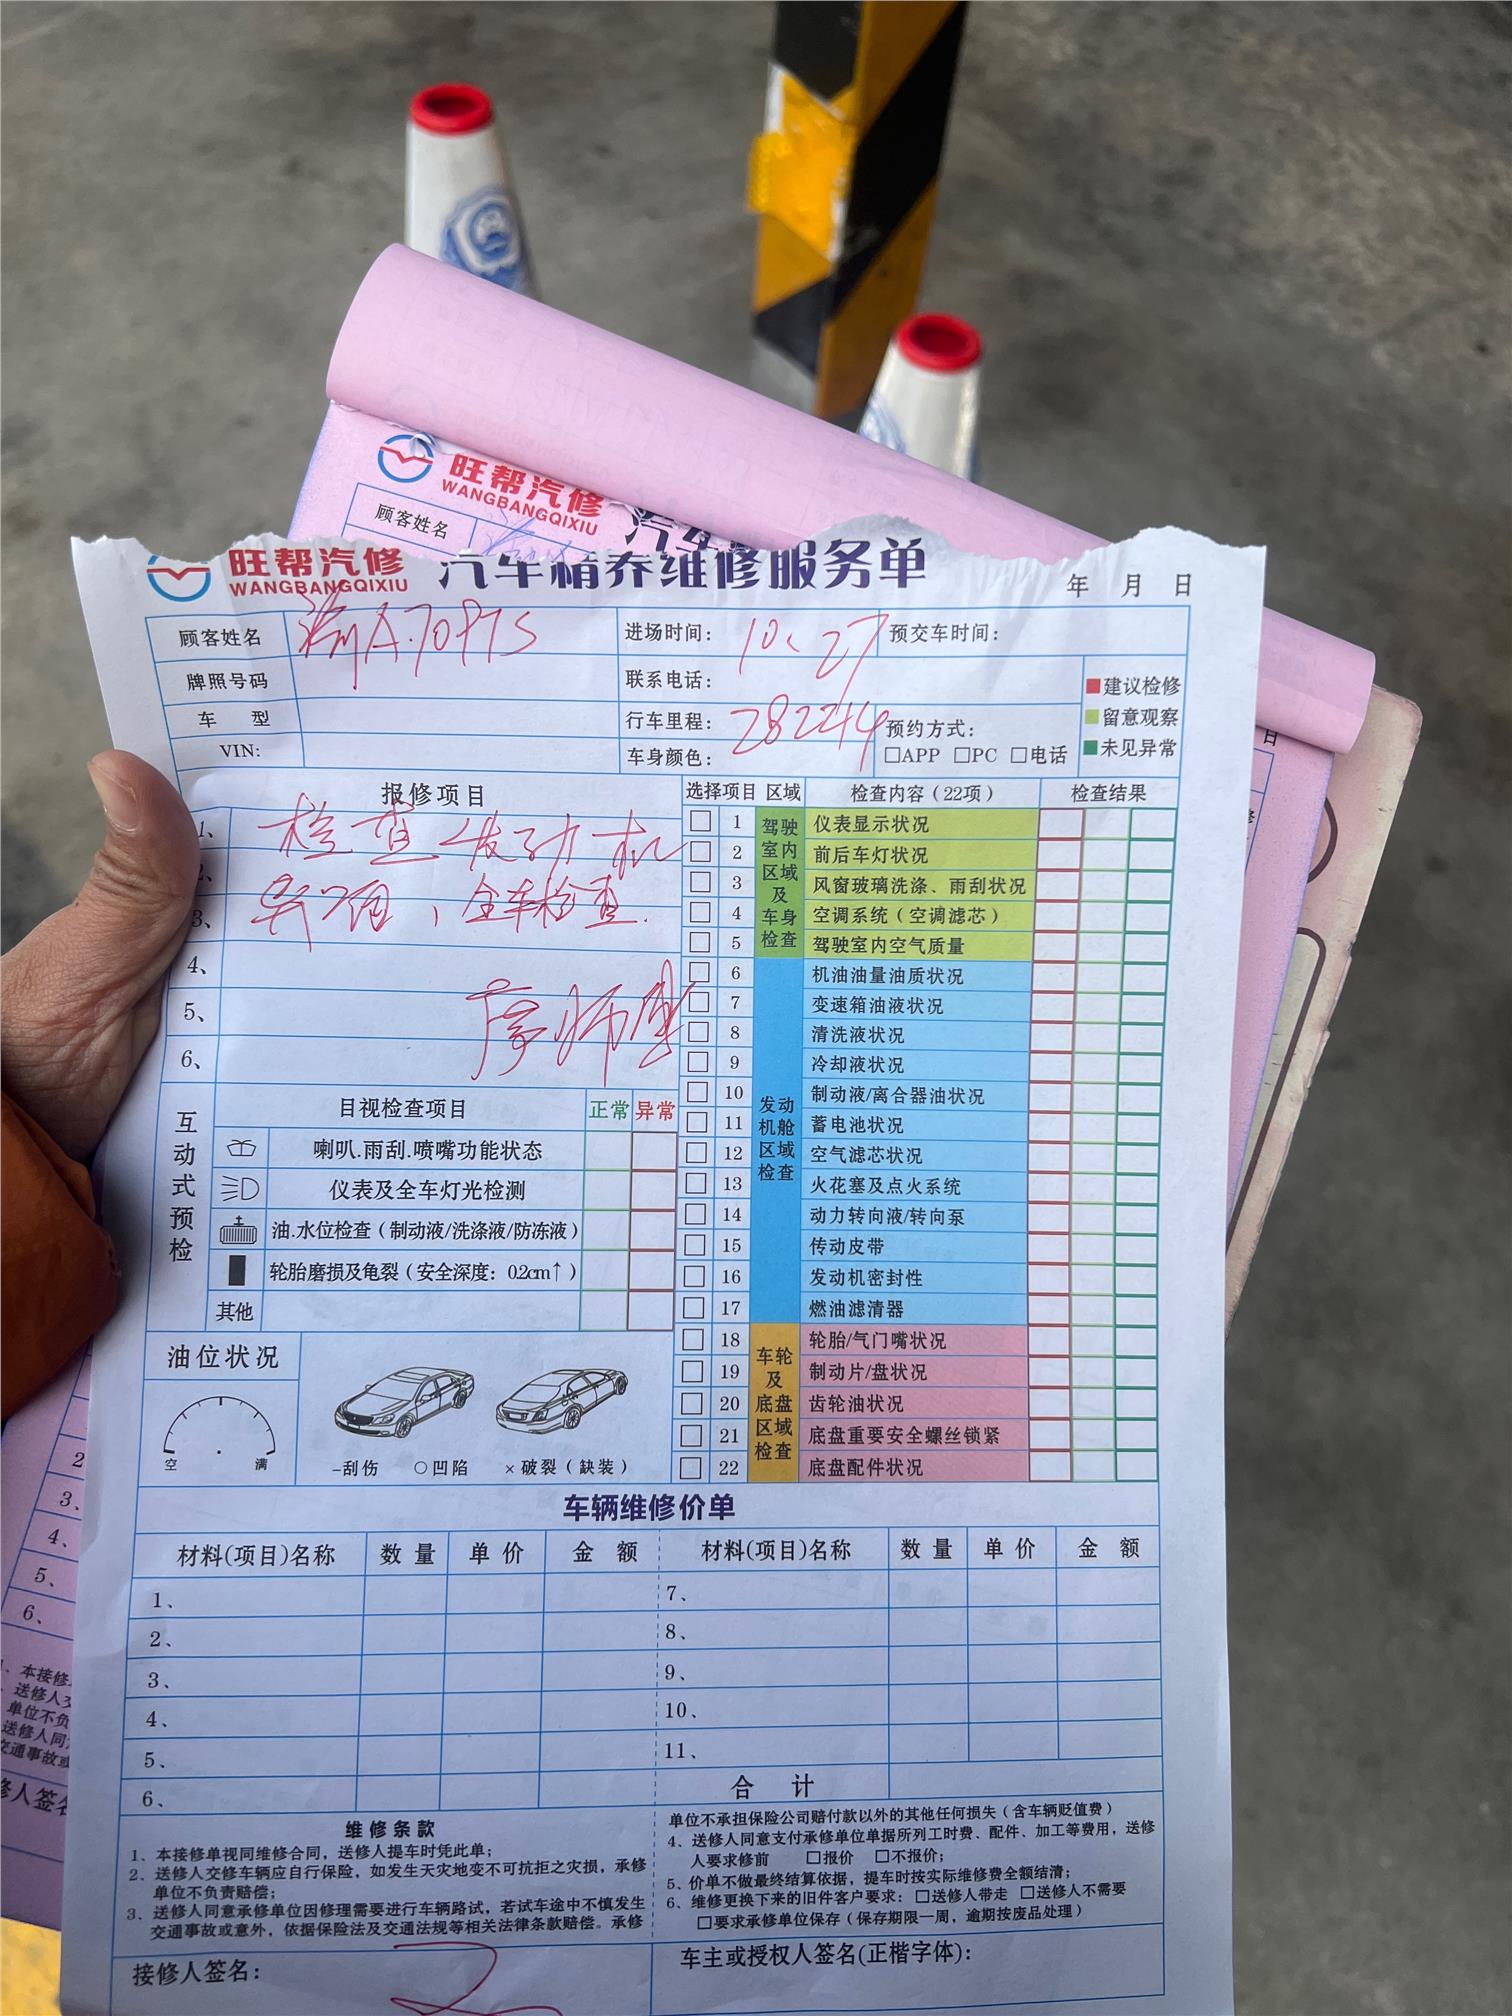 旺帮汽修
WANGBANGQIXIU
顾客姓名
旺帮汽修
WANGBANGQIXIU
汽车精养维修服务单
年 月 日
顾客姓名 渝A·709TS 进场时间: 10、27 预交车时间:
牌照号码 联系电话:
车 型 行车里程: 282244 预约方式:
□APP □PC □电话
VIN: 车身颜色:
建议检修
留意观察
未见异常
报修项目
1、检查发动机
2、
3、异响、全车检查.
4、
5、廖师傅
6、
选择项目 区域 检查内容（22项） 检查结果
驾驶室内区域及车身检查
1 仪表显示状况
2 前后车灯状况
3 风窗玻璃洗涤、雨刮状况
4 空调系统（空调滤芯）
5 驾驶室内空气质量
发动机舱区域检查
6 机油油量油质状况
7 变速箱油液状况
8 清洗液状况
9 冷却液状况
10 制动液/离合器油状况
11 蓄电池状况
12 空气滤芯状况
13 火花塞及点火系统
14 动力转向液/转向泵
15 传动皮带
16 发动机密封性
17 燃油滤清器
车轮及底盘区域检查
18 轮胎/气门嘴状况
19 制动片/盘状况
20 齿轮油状况
21 底盘重要安全螺丝锁紧
22 底盘配件状况
互动式预检
目视检查项目 正常 异常
喇叭.雨刮.喷嘴功能状态
仪表及全车灯光检测
油.水位检查（制动液/洗涤液/防冻液）
轮胎磨损及龟裂（安全深度：0.2cm↑）
其他
油位状况
空 满
-刮伤 ○凹陷 ×破裂（缺装）
车辆维修价单
材料(项目)名称 数量 单价 金额 材料(项目)名称 数量 单价 金额
1、 7、
2、 8、
3、 9、
4、 10、
5、 11、
6、 合 计
维修条款
1、本接修单视同维修合同，送修人提车时凭此单；
2、送修人交修车辆应自行保险，如发生天灾地变不可抗拒之灾损，承修
单位不负责赔偿；
3、送修人同意承修单位因修理需要进行车辆路试，若试车途中不慎发生
交通事故或意外，依据保险法及交通法规等相关法律条款赔偿。承修
单位不承担保险公司赔付款以外的其他任何损失（含车辆贬值费）
4、送修人同意支付承修单位单据所列工时费、配件、加工等费用，送修
人要求修前 □报价 □不报价；
5、价单不做最终结算依据，提车时按实际维修费全额结清；
6、维修更换下来的旧件客户要求：□送修人带走 □送修人不需要
□要求承修单位保存（保存期限一周，逾期按废品处理）
接修人签名：
车主或授权人签名(正楷字体)：